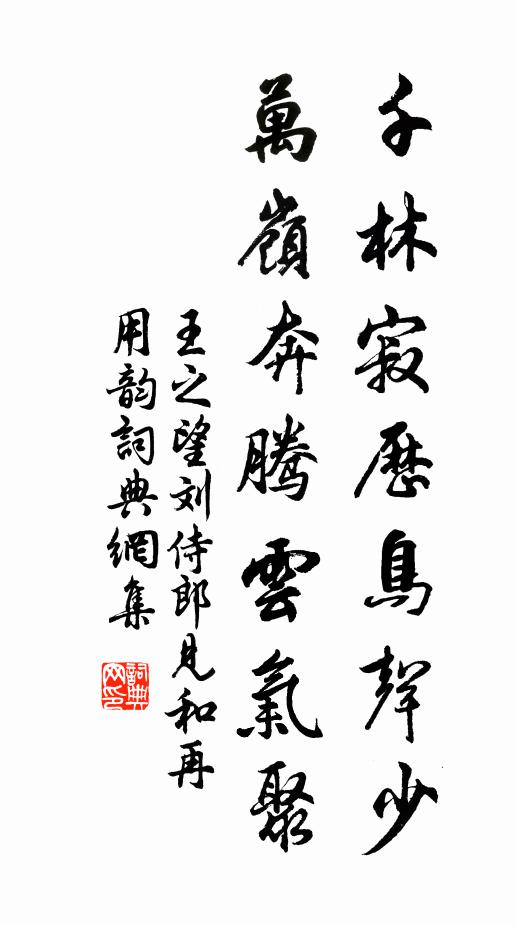 千林寂歷鳥聲少
萬嶺奔騰雲氣聚
王之望刘侍郎見和再
用韵詞典網集
詞典
网印